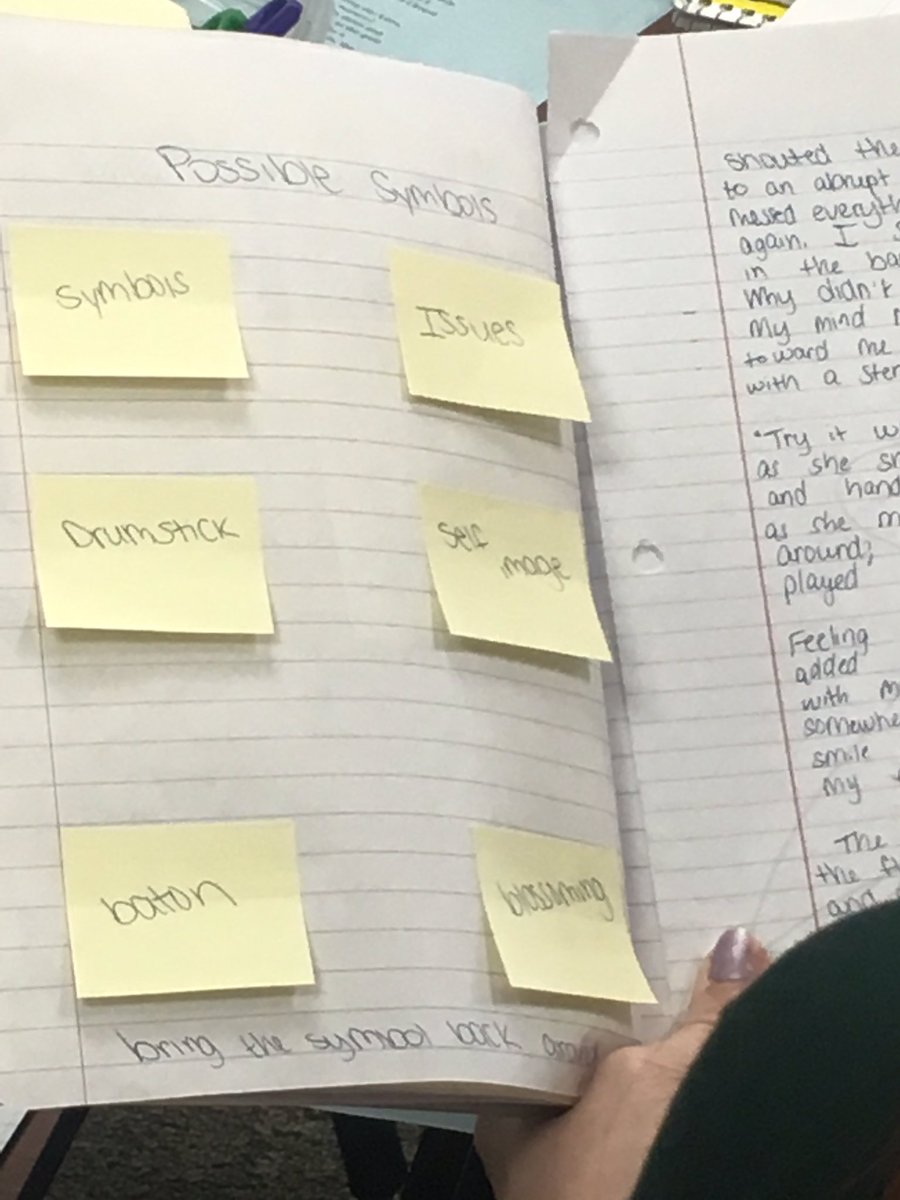 Possible Symbols
Symbols
Issues
Drumstick
Self
image
baton
blossuming
bring the symbol back
shouted the
to an abrupt
messed everyth
again. I
in the ba
Why didn't
My mind
toward me
with a ster
"Try it w
as she
and hand
as she m
around;
played
Feeling
added
with m
somewhe
smile
my
The
the
and